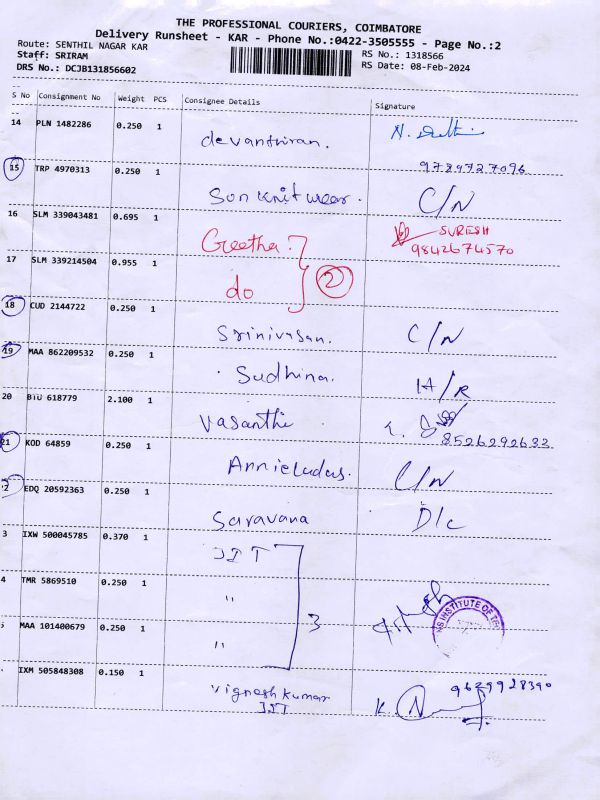 THE PROFESSIONAL COURIERS, COIMBATORE
Delivery Runsheet - KAR - Phone No.:0422-3505555 - Page No.:2
Route: SENTHIL NAGAR KAR
RS No.: 1318566
Staff: SRIRAM
RS Date: 08-Feb-2024
DRS No.: DCJB131856602
S No Consignment No Weight PCS Consignee Details Signature
14 PLN 1482286 0.250 1
devanthiran.
9789727096
15 TRP 4970313 0.250 1
Sun knit wear. C/N
16 SLM 339043481 0.695 1
Geetha. SURESH
9842674570
17 SLM 339214504 0.955 1
do 2
18 CUD 2144722 0.250 1
Srinivasan. C/N
19 MAA 862209532 0.250 1
Sudhina.
20 BTU 618779 2.100 1
Vasanthi
8526292632
21 KOD 64859 0.250 1
Annieludas. C/N
2 EDQ 20592363 0.250 1
Saravana D/C
3 IXW 500045785 0.370 1
JIT
4 TMR 5869510 0.250 1
" 3
NS INSTITUTE OF
MAA 101400679 0.250 1
"
IXM 505848308 0.150 1
Vignesh kumar 9629928390
JIT